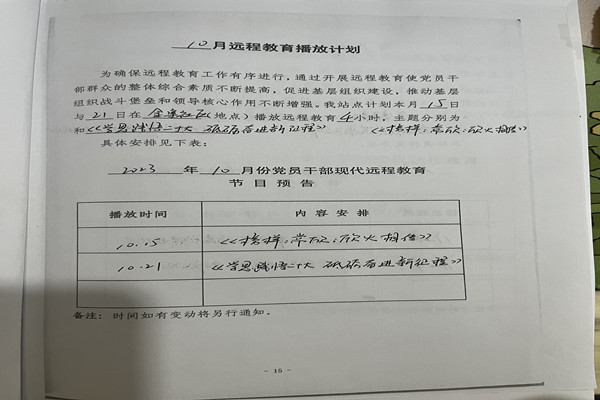 10月远程教育播放计划
为确保远程教育工作有序进行，通过开展远程教育使党员干
部群众的整体综合素质不断提高，促进基层组织建设，推动基层
组织战斗堡垒和领导核心作用不断增强。我站点计划本月 15 日
与 21 日在 社区(地点)播放远程教育 4 小时，主题分别为
和《学思践悟二十大 砥砺奋进新征程》 《榜样：常欣：欣火相传》
具体安排见下表：
2023 年 10 月份党员干部现代远程教育
节目预告
播放时间 内容安排
10.15 《榜样：常欣：欣火相传》
10.21 《学思践悟二十大 砥砺奋进新征程》
备注：时间如有变动将另行通知。
- 15 -